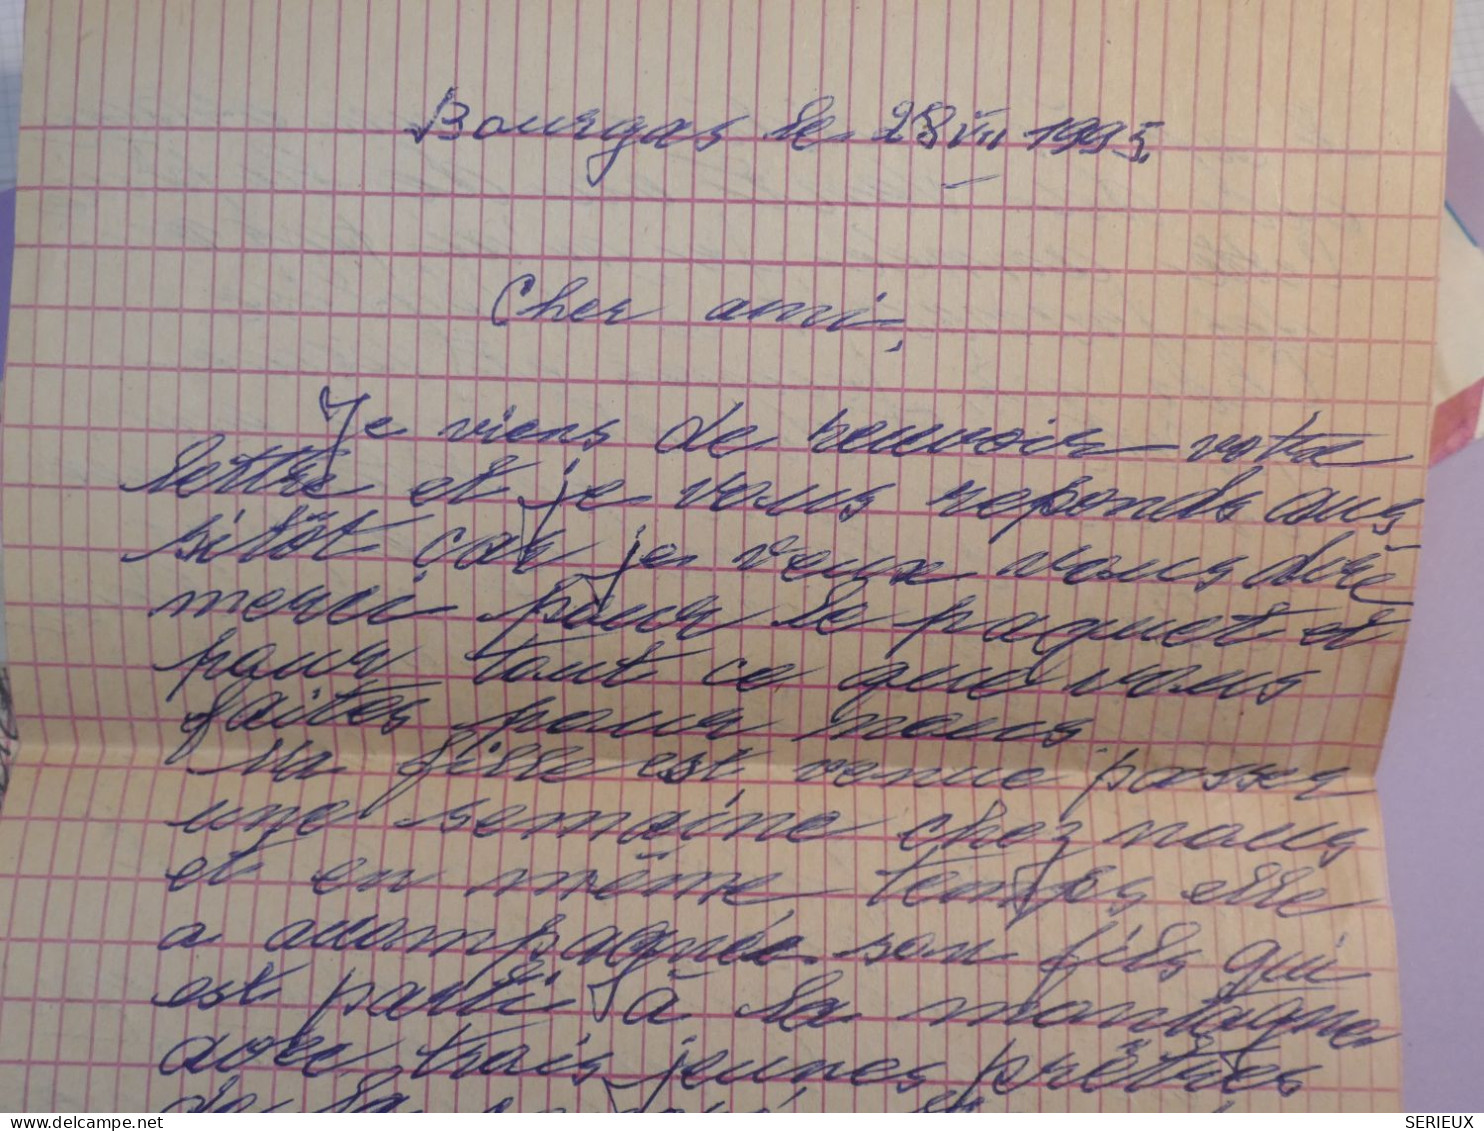 Bourgas le 28 VII 1995
Cher ami,
Je viens de recevoir votre
lettre et je vous reponds aus
sitôt çar je veux vous dire
merci pour le paquet et
pour tout ce que vous
faites pour nous.
Ma fille est venue passer
une semaine chez nous
et en même temps elle
a accompagnée son fils qui
est parti à la montagne
avec trois jeunes prêtres
de la
delcampe.net
SERIEUX